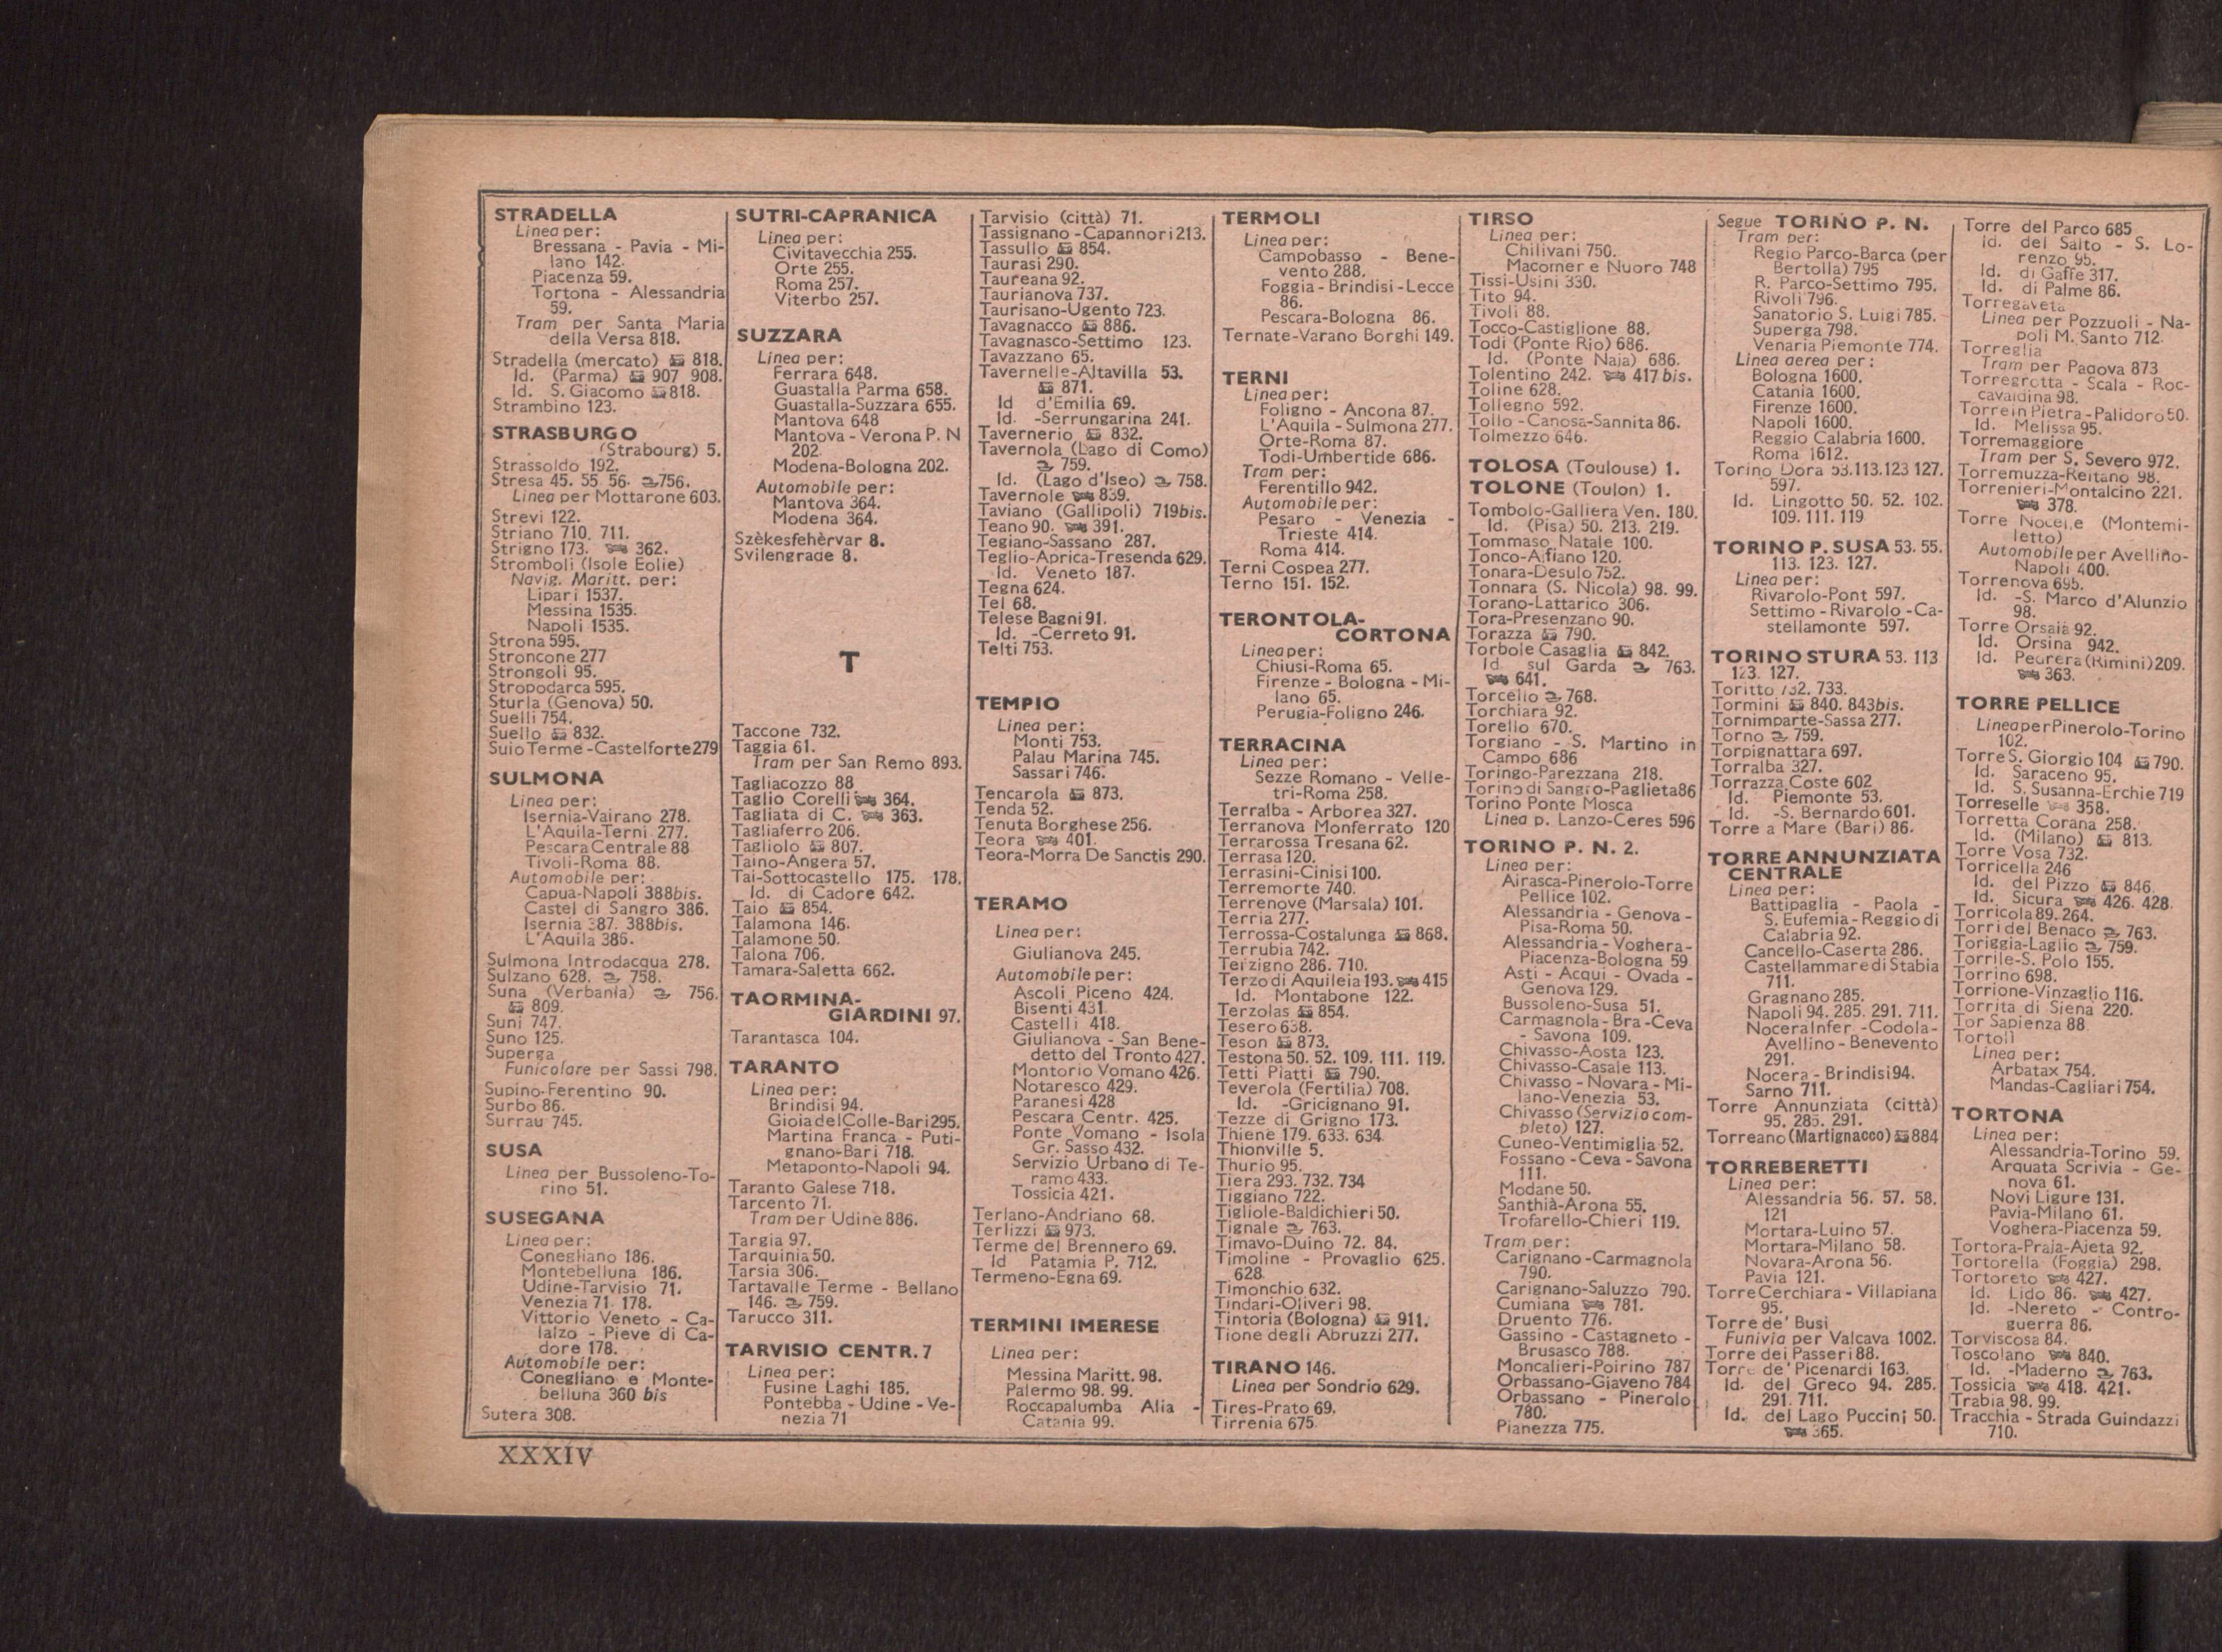 STRADELLA
Linea per:
Bressana - Pavia - Mi-
lano 142.
Piacenza 59.
Tortona - Alessandria
59.
Tram per Santa Maria
della Versa 818.
Stradella (mercato) 818.
Id. (Parma) 907 908.
Id. S. Giacomo 818.
Strambino 123.
STRASBURGO
(Strabourg) 5.
Strassoldo 192.
Stresa 45. 55 56. 756.
Linea per Mottarone 603.
Strevi 122.
Striano 710. 711.
Strigno 173. 362.
Stromboli (Isole Eolie)
Navig. Maritt. per:
Lipari 1537.
Messina 1535.
Napoli 1535.
Strona 595.
Stroncone 277
Strongoli 95.
Stropodarca 595.
Sturla (Genova) 50.
Suelli 754.
Suello 832.
Suio Terme-Castelforte 279
SULMONA
Linea per:
Isernia-Vairano 278.
L'Aquila-Terni 277.
Pescara Centrale 88
Tivoli-Roma 88.
Automobile per:
Capua-Napoli 388bis.
Castel di Sangro 386.
Isernia 387. 388bis.
L'Aquila 386.
Sulmona Introdacqua 278.
Sulzano 628. 758.
Suna (Verbania) 756.
809.
Suni 747.
Suno 125.
Superga
Funicolare per Sassi 798.
Supino-Ferentino 90.
Surbo 86.
Surrau 745.
SUSA
Linea per Bussoleno-To-
rino 51.
SUSEGANA
Linea per:
Conegliano 186.
Montebelluna 186.
Udine-Tarvisio 71.
Venezia 71. 178.
Vittorio Veneto - Ca-
lalzo - Pieve di Ca-
dore 178.
Automobile per:
Conegliano e Monte-
belluna 360 bis
Sutera 308.
SUTRI-CAPRANICA
Linea per:
Civitavecchia 255.
Orte 255.
Roma 257.
Viterbo 257.
SUZZARA
Linea per:
Ferrara 648.
Guastalla Parma 658.
Guastalla-Suzzara 655.
Mantova 648
Mantova - Verona P. N
202.
Modena-Bologna 202.
Automobile per:
Mantova 364.
Modena 364.
Szèkesfehèrvar 8.
Svilengrade 8.
T
Taccone 732.
Taggia 61.
Tram per San Remo 893.
Tagliacozzo 88
Taglio Corelli 364.
Tagliata di C. 363.
Tagliaferro 206.
Tagliolo 807.
Taino-Angera 57.
Tai-Sottocastello 175. 178.
Id. di Cadore 642.
Taio 854.
Talamona 146.
Talamone 50.
Talona 706.
Tamara-Saletta 662.
TAORMINA-
GIARDINI 97.
Tarantasca 104.
TARANTO
Linea per:
Brindisi 94.
Gioia del Colle-Bari 295.
Martina Franca - Puti-
gnano-Bari 718.
Metaponto-Napoli 94.
Taranto Galese 718.
Tarcento 71.
Tram per Udine 886.
Targia 97.
Tarquinia 50.
Tarsia 306.
Tartavalle Terme - Bellano
146. 759.
Tarucco 311.
TARVISIO CENTR. 7
Linea per:
Fusine Laghi 185.
Pontebba - Udine - Ve-
nezia 71
Tarvisio (città) 71.
Tassignano - Capannori 213.
Tassullo 854.
Taurasi 290.
Taureana 92.
Taurianova 737.
Taurisano-Ugento 723.
Tavagnacco 886.
Tavagnasco-Settimo 123.
Tavazzano 65.
Tavernelle-Altavilla 53.
871.
Id d'Emilia 69.
Id. -Serrungarina 241.
Tavernerio 832.
Tavernola (Lago di Como)
759.
Id. (Lago d'Iseo) 758.
Tavernole 839.
Taviano (Gallipoli) 719bis.
Teano 90. 391.
Tegiano-Sassano 287.
Teglio-Aprica-Tresenda 629.
Id. Veneto 187.
Tegna 624.
Tel 68.
Telese Bagni 91.
Id. -Cerreto 91.
Telti 753.
TEMPIO
Linea per:
Monti 753.
Palau Marina 745.
Sassari 746.
Tencarola 873.
Tenda 52.
Tenuta Borghese 256.
Teora 401.
Teora-Morra De Sanctis 290.
TERAMO
Linea per:
Giulianova 245.
Automobile per:
Ascoli Piceno 424.
Bisenti 431
Castelli 418.
Giulianova - San Bene-
detto del Tronto 427.
Montorio Vomano 426.
Notaresco 429.
Paranesi 428
Pescara Centr. 425.
Ponte Vomano - Isola
Gr. Sasso 432.
Servizio Urbano di Te-
ramo 433.
Tossicia 421.
Terlano-Andriano 68.
Terlizzi 973.
Terme del Brennero 69.
Id Patamia P. 712.
Termeno-Egna 69.
TERMINI IMERESE
Linea per:
Messina Maritt. 98.
Palermo 98. 99.
Roccapalumba Alia -
Catania 99.
TERMOLI
Linea per:
Campobasso - Bene-
vento 288.
Foggia - Brindisi - Lecce
86.
Pescara-Bologna 86.
Ternate-Varano Borghi 149.
TERNI
Linea per:
Foligno - Ancona 87.
L'Aquila - Sulmona 277.
Orte-Roma 87.
Todi-Umbertide 686.
Tram per:
Ferentillo 942.
Automobile per:
Pesaro - Venezia -
Trieste 414.
Roma 414.
Terni Cospea 277.
Terno 151. 152.
TERONTOLA-
CORTONA
Linea per:
Chiusi-Roma 65.
Firenze - Bologna - Mi-
lano 65.
Perugia-Foligno 246.
TERRACINA
Linea per:
Sezze Romano - Velle-
tri-Roma 258.
Terralba - Arborea 327.
Terranova Monferrato 120
Terrarossa Tresana 62.
Terrasa 120.
Terrasini-Cinisi 100.
Terremorte 740.
Terrenove (Marsala) 101.
Terria 277.
Terrossa-Costalunga 868.
Terrubia 742.
Terzigno 286. 710.
Terzo di Aquileia 193. 415
Id. Montabone 122.
Terzolas 854.
Tesero 638.
Teson 873.
Testona 50. 52. 109. 111. 119.
Tetti Piatti 790.
Teverola (Fertilia) 708.
Id. -Gricignano 91.
Tezze di Grigno 173.
Thiene 179. 633. 634
Thionville 5.
Thurio 95.
Tiera 293. 732. 734
Tiggiano 722.
Tigliole-Baldichieri 50.
Tignale 763.
Timavo-Duino 72. 84.
Timoline - Provaglio 625.
628.
Timonchio 632.
Tindari-Oliveri 98.
Tintoria (Bologna) 911.
Tione degli Abruzzi 277.
TIRANO 146.
Linea per Sondrio 629.
Tires-Prato 69.
Tirrenia 675.
TIRSO
Linea per:
Chilivani 750.
Macomer e Nuoro 748
Tissi-Usini 330.
Tito 94.
Tivoli 88.
Tocco-Castiglione 88.
Todi (Ponte Rio) 686.
Id. (Ponte Naja) 686.
Tolentino 242. 417 bis.
Toline 628.
Tollegno 592.
Tollo - Canosa-Sannita 86.
Tolmezzo 646.
TOLOSA (Toulouse) 1.
TOLONE (Toulon) 1.
Tombolo-Galliera Ven. 180.
Id. (Pisa) 50. 213. 219.
Tommaso Natale 100.
Tonco-Alfiano 120.
Tonara-Desulo 752.
Tonnara (S. Nicola) 98. 99.
Torano-Lattarico 306.
Tora-Presenzano 90.
Torazza 790.
Torbole Casaglia 842.
Id sul Garda 763.
641.
Torcelio 768.
Torchiara 92.
Torello 670.
Torgiano - S. Martino in
Campo 686
Toringo-Parezzana 218.
Torino di Sangro-Paglieta 86
Torino Ponte Mosca
Linea p. Lanzo-Ceres 596
TORINO P. N. 2.
Linea per:
Airasca-Pinerolo-Torre
Pellice 102.
Alessandria - Genova -
Pisa-Roma 50.
Alessandria - Voghera-
Piacenza-Bologna 59
Asti - Acqui - Ovada -
Genova 129.
Bussoleno-Susa 51.
Carmagnola - Bra - Ceva
- Savona 109.
Chivasso-Aosta 123.
Chivasso-Casale 113.
Chivasso - Novara - Mi-
lano-Venezia 53.
Chivasso (Servizio com-
pleto) 127.
Cuneo-Ventimiglia 52.
Fossano - Ceva - Savona
111.
Modane 50.
Santhià-Arona 55.
Trofarello-Chieri 119.
Tram per:
Carignano - Carmagnola
790.
Carignano-Saluzzo 790.
Cumiana 781.
Druento 776.
Gassino - Castagneto -
Brusasco 788.
Moncalieri-Poirino 787
Orbassano-Giaveno 784
Orbassano - Pinerolo
780.
Pianezza 775.
Segue TORINO P. N.
Tram per:
Regio Parco-Barca (per
Bertolla) 795
R. Parco-Settimo 795.
Rivoli 796.
Sanatorio S. Luigi 785.
Superga 798.
Venaria Piemonte 774.
Linea aerea per:
Bologna 1600.
Catania 1600.
Firenze 1600.
Napoli 1600.
Reggio Calabria 1600.
Roma 1612.
Torino Dora 53.113.123 127.
597.
Id. Lingotto 50. 52. 102.
109. 111. 119
TORINO P. SUSA 53. 55.
113. 123. 127.
Linea per:
Rivarolo-Pont 597.
Settimo - Rivarolo - Ca-
stellamonte 597.
TORINO STURA 53. 113
123. 127.
Toritto 732. 733.
Tormini 840. 843bis.
Tornimparte-Sassa 277.
Torno 759.
Torpignattara 697.
Torralba 327.
Torrazza Coste 602
Id. Piemonte 53.
Id. -S. Bernardo 601.
Torre a Mare (Bari) 86.
TORRE ANNUNZIATA
CENTRALE
Linea per:
Battipaglia - Paola -
S. Eufemia - Reggio di
Calabria 92.
Cancello-Caserta 286.
Castellammare di Stabia
711.
Gragnano 285.
Napoli 94. 285. 291. 711.
Nocera Infer. - Codola-
Avellino - Benevento
291.
Nocera - Brindisi 94.
Sarno 711.
Torre Annunziata (città)
95. 285. 291.
Torreano (Martignacco) 884
TORREBERETTI
Linea per:
Alessandria 56. 57. 58.
121
Mortara-Luino 57.
Mortara-Milano 58.
Novara-Arona 56.
Pavia 121.
Torre Cerchiara - Villapiana
95.
Torre de' Busi
Funivia per Valcava 1002.
Torre dei Passeri 88.
Torre de' Picenardi 163.
Id. del Greco 94. 285.
291. 711.
Id. del Lago Puccini 50.
365.
Torre del Parco 685
Id. del Salto - S. Lo-
renzo 95.
Id. di Gaffe 317.
Id. di Palme 86.
Torregaveta
Linea per Pozzuoli - Na-
poli M. Santo 712.
Torreglia
Tram per Padova 873
Torregrotta - Scala - Roc-
cavaldina 98.
Torre in Pietra - Palidoro 50.
Id. Melissa 95.
Torremaggiore
Tram per S. Severo 972.
Torremuzza-Reitano 98.
Torrenieri-Montalcino 221.
378.
Torre Nocelle (Montemi-
letto)
Automobile per Avellino-
Napoli 400.
Torrenova 695.
Id. -S. Marco d'Alunzio
98.
Torre Orsaia 92.
Id. Orsina 942.
Id. Pedrera (Rimini) 209.
363.
TORRE PELLICE
Linea per Pinerolo-Torino
102.
Torre S. Giorgio 104 790.
Id. Saraceno 95.
Id. S. Susanna-Erchie 719
Torreselle 358.
Torretta Corana 258.
Id. (Milano) 813.
Torre Vosa 732.
Torricella 246
Id. del Pizzo 846.
Id. Sicura 426. 428.
Torricola 89. 264.
Torri del Benaco 763.
Toriggia-Laglio 759.
Torrile-S. Polo 155.
Torrino 698.
Torrione-Vinzaglio 116.
Torrita di Siena 220.
Tor Sapienza 88
Tortolì
Linea per:
Arbatax 754.
Mandas-Cagliari 754.
TORTONA
Linea per:
Alessandria-Torino 59.
Arquata Scrivia - Ge-
nova 61.
Novi Ligure 131.
Pavia-Milano 61.
Voghera-Piacenza 59.
Tortora-Praia-Aieta 92.
Tortorella (Foggia) 298.
Tortoreto 427.
Id. Lido 86. 427.
Id. -Nereto - Contro-
guerra 86.
Torviscosa 84.
Toscolano 840.
Id. -Maderno 763.
Tossicia 418. 421.
Trabia 98. 99.
Tracchia - Strada Guindazzi
710.
XXXIV